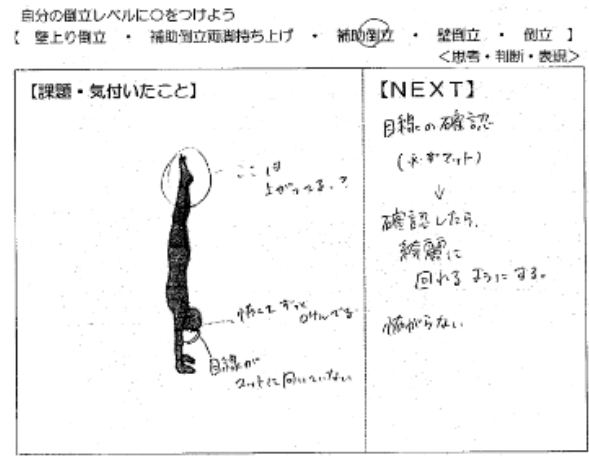 自分の倒立レベルに○をつけよう
【 壁上り倒立 ・ 補助倒立両脚持ち上げ ・ 補助倒立 ・ 壁倒立 ・ 倒立 】
＜思考・判断・表現＞
【課題・気付いたこと】
ここは
上がってる。?
怖くて ずっと
目線が
マットに向いていない
【NEXT】
目線の確認
↓
確認したら、
綺麗に
回れるようにする。
怖がらない